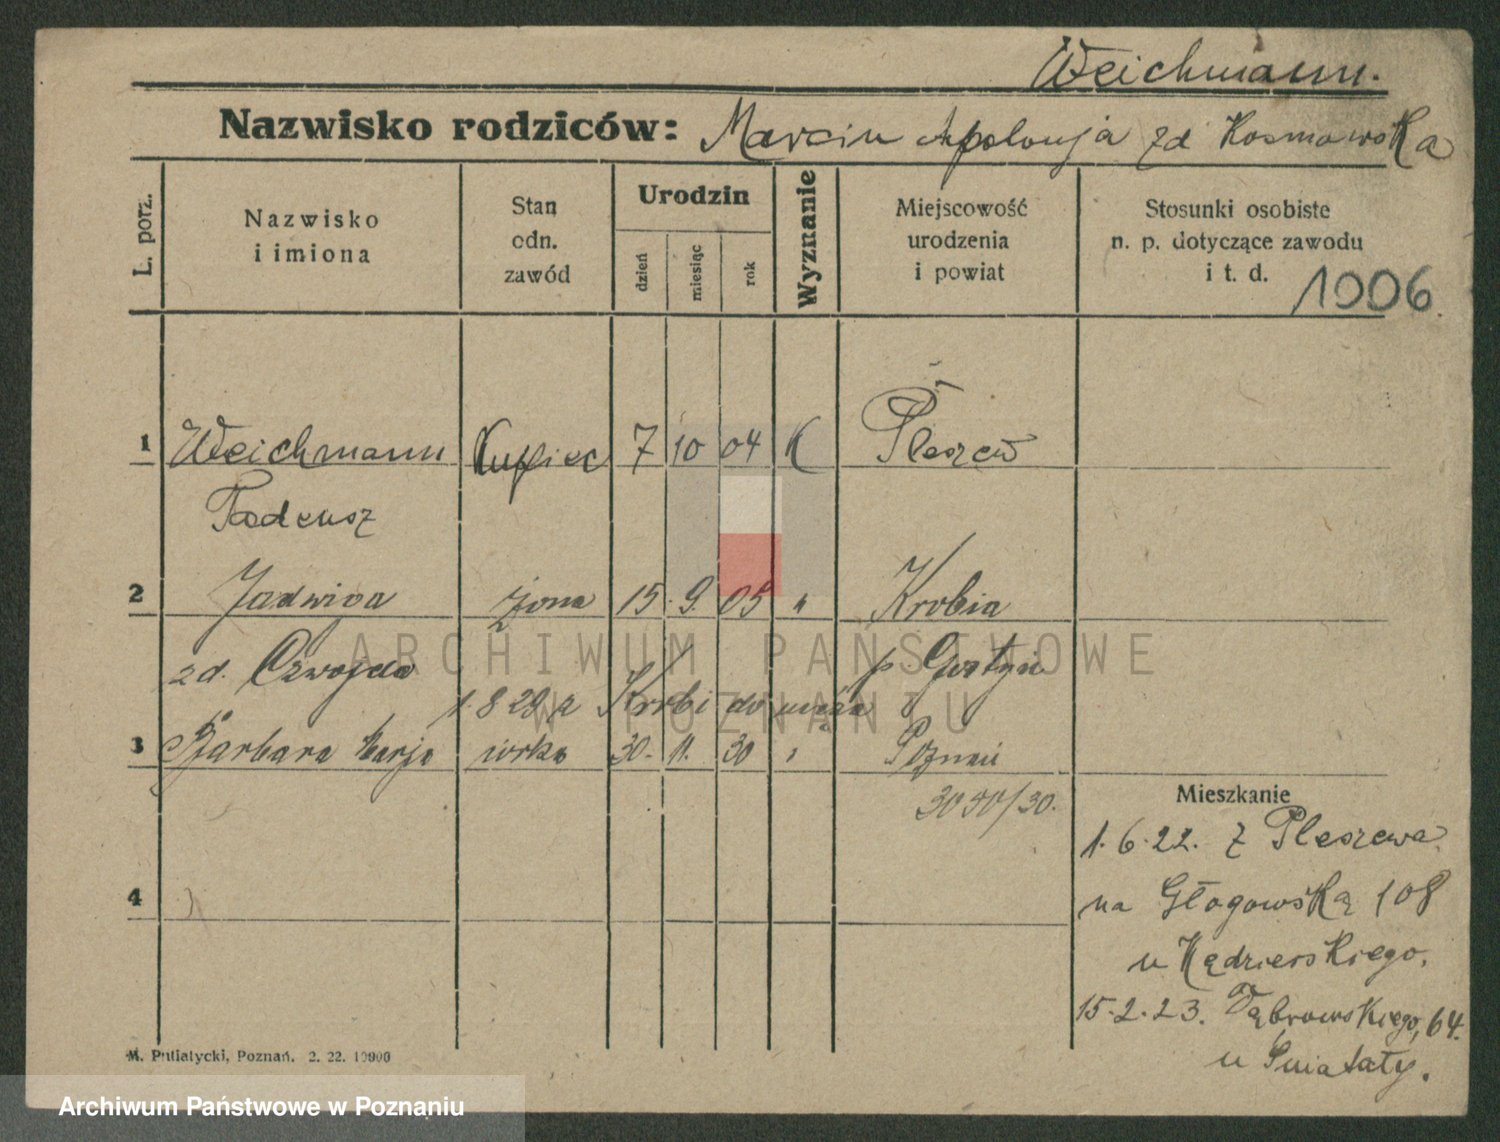 Weichmann.
Nazwisko rodziców: Marcin Apolonja zd Kosmowska
L. porz.
Nazwisko
i imiona
Stan
odn.
zawód
Urodzin
dzień
miesiąc
rok
Wyznanie
Miejscowość
urodzenia
i powiat
Stosunki osobiste
n. p. dotyczące zawodu
i t. d.
1006
1 Weichmann Kupiec 7 10 04 K Pleszew
Tadeusz
2 Jadwiga żona 15. 9. 05 " Krobia
zd. Czwojda p Gostyń
1.8.29 z Krobi do męża
3 Barbara Marja córka 30. 11. 30 " Poznań
3050/30.
4
Mieszkanie
1.6.22. z Pleszewa
na Głogowską 108
u Kędzierskiego.
15.2.23. Dąbrowskiego, 64.
u Śniatały.
M. Putiatycki, Poznań. 2. 22. 10000
ARCHIWUM PAŃSTWOWE
W POZNANIU
Archiwum Państwowe w Poznaniu